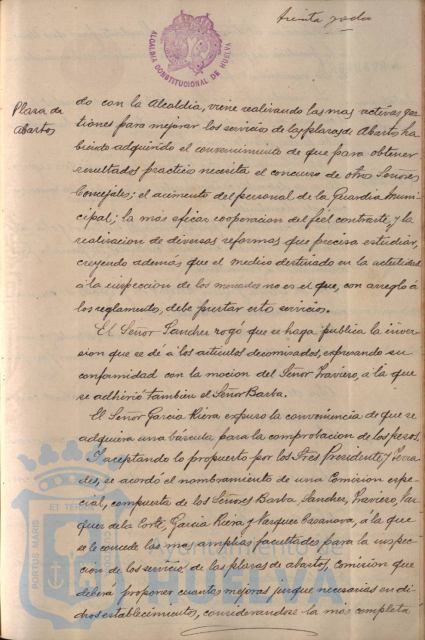 treinta y ocho
ALCALDIA CONSTITUCIONAL DE HUELVA
Plaza de
Abastos
do con la Alcaldia, viene realizando las mas activas ges-
tiones para mejorar los servicios de las plazas de Abastos ha-
biendo adquirido el convencimiento de que para obtener
resultados practicos necesita el concurso de otros Señores
Concejales; el aumento del personal de la Guardia Muni-
cipal; la más eficaz cooperacion del fiel contraste, y la
realizacion de diversas reformas que precisa estudiar,
creyendo además que el medico destinado en la actualidad
á la inspeccion de los mercados no es el que, con arreglo á
los reglamentos, debe prestar esto servicios.
El Señor Sanchez rogó que se haga publica la inver-
sion que se dé á los articulos decomisados, expresando su
conformidad con la mocion del Señor Traviero, á la que
se adhirió tambien el Señor Barba.
El Señor Garcia Riera expuso la conveniencia de que se
adquiera una báscula para la comprobacion de los pesos.
Y aceptando lo propuesto por los Sres Presidente y
des, se acordó el nombramiento de una Comision espe-
cial, compuesta de los Señores Barba, Sanchez, Traviero,
quez de la Corte, Garcia Riera y Vazquez Casanova, á la que
se le concede las mas amplias facultades para la inspec-
cion de los servicios de las plazas de abastos, comision que
deberá proponer cuantas mejoras juzgue necesarias en di-
chos establecimientos, considerandose la más completa
Ayuntamiento de
HUELVA
PORTUS MARIS
ET TERRAE